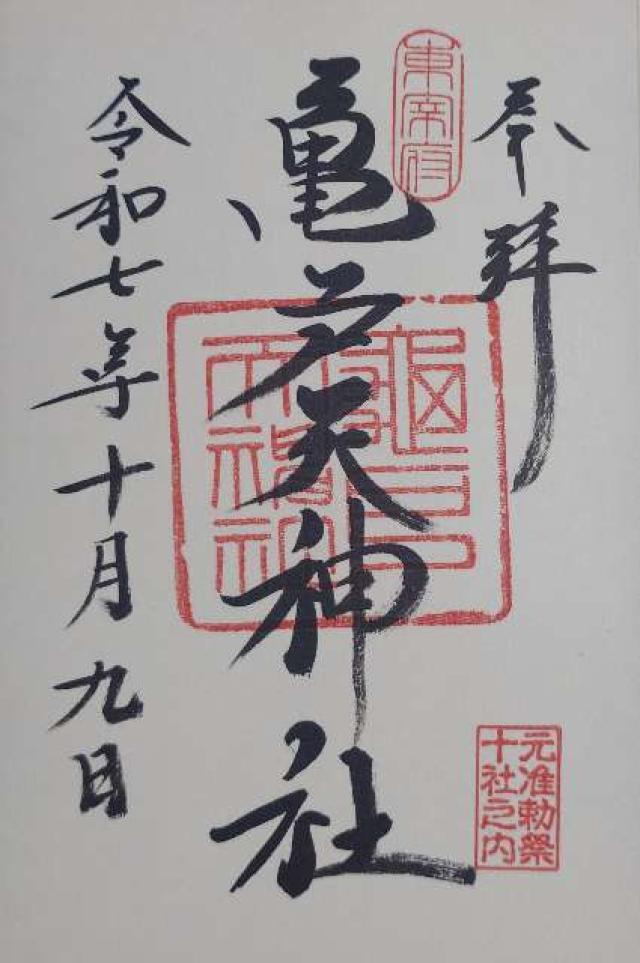 奉拝
東宰府
亀戸天神社
元准勅祭
十社之内
令和七年十月九日